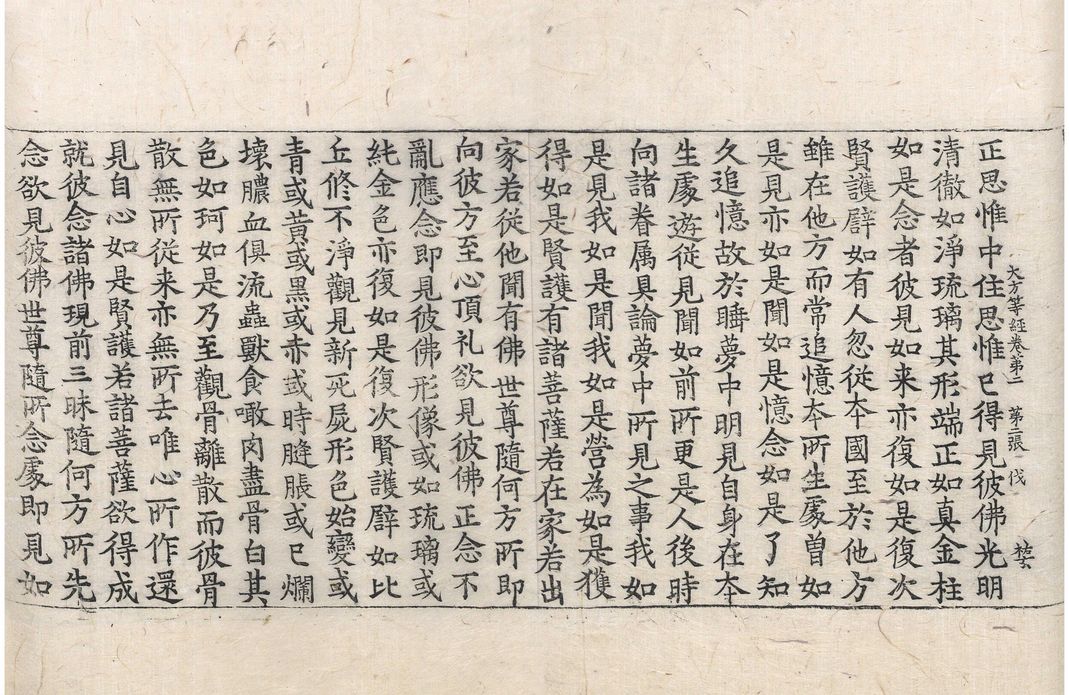 正思惟中住思惟已得見彼佛光明
大方等經卷第二 第三張 伐
清徹如淨琉璃其形端正如真金柱
如是念者彼見如来亦復如是復次
賢護譬如有人忽從夲國至於他方
雖在他方而常追憶夲所生處曽如
是見亦如是聞如是憶念如是了知
久追憶故於睡夢中明見自身在夲
生處遊從見聞如前所更是人後時
向諸眷属具論夢中所見之事我如
是見我如是聞我如是營為如是獲
得如是賢護有諸菩薩若在家若出
家若從他聞有佛世尊隨何方所即
向彼方至心頂礼欲見彼佛正念不
亂應念即見彼佛形像或如琉璃或
純金色亦復如是復次賢護譬如比
丘修不淨觀見新死屍形色始變或
青或黃或黑或赤或時膖脹或已爛
壞膿血俱流蟲獸食噉肉盡骨白其
色如珂如是乃至觀骨離散而彼骨
散無所従来亦無所去唯心所作還
見自心如是賢護若諸菩薩欲得成
就彼念諸佛現前三昧隨何方所先
念欲見彼佛世尊隨所念處即見如